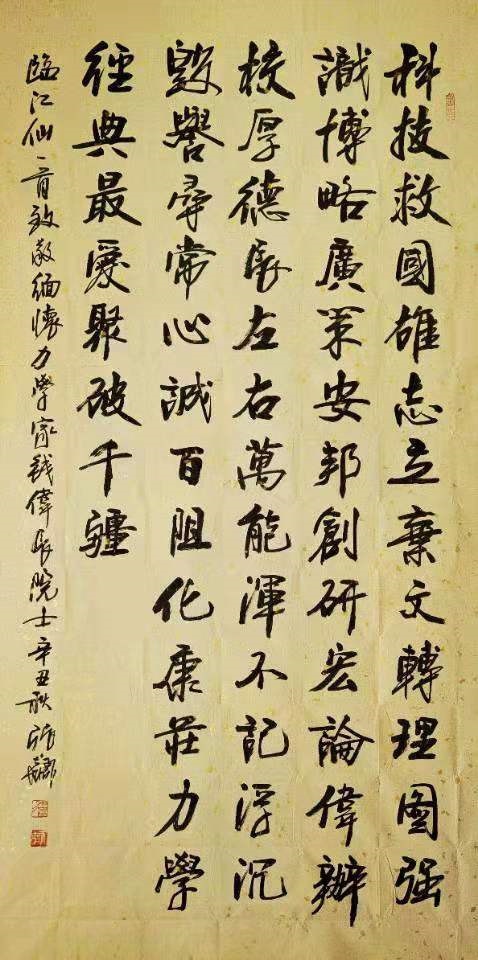 科技救國雄志立棄文轉理圖强
識博略廣策安邦創研宏論偉辦
校厚德長左右萬能渾不記浮沉
毀譽尋常心誠百阻化康莊力學
經典最愛聚破千疆
臨江仙一首致敬緬懷力學家錢偉長院士辛丑秋